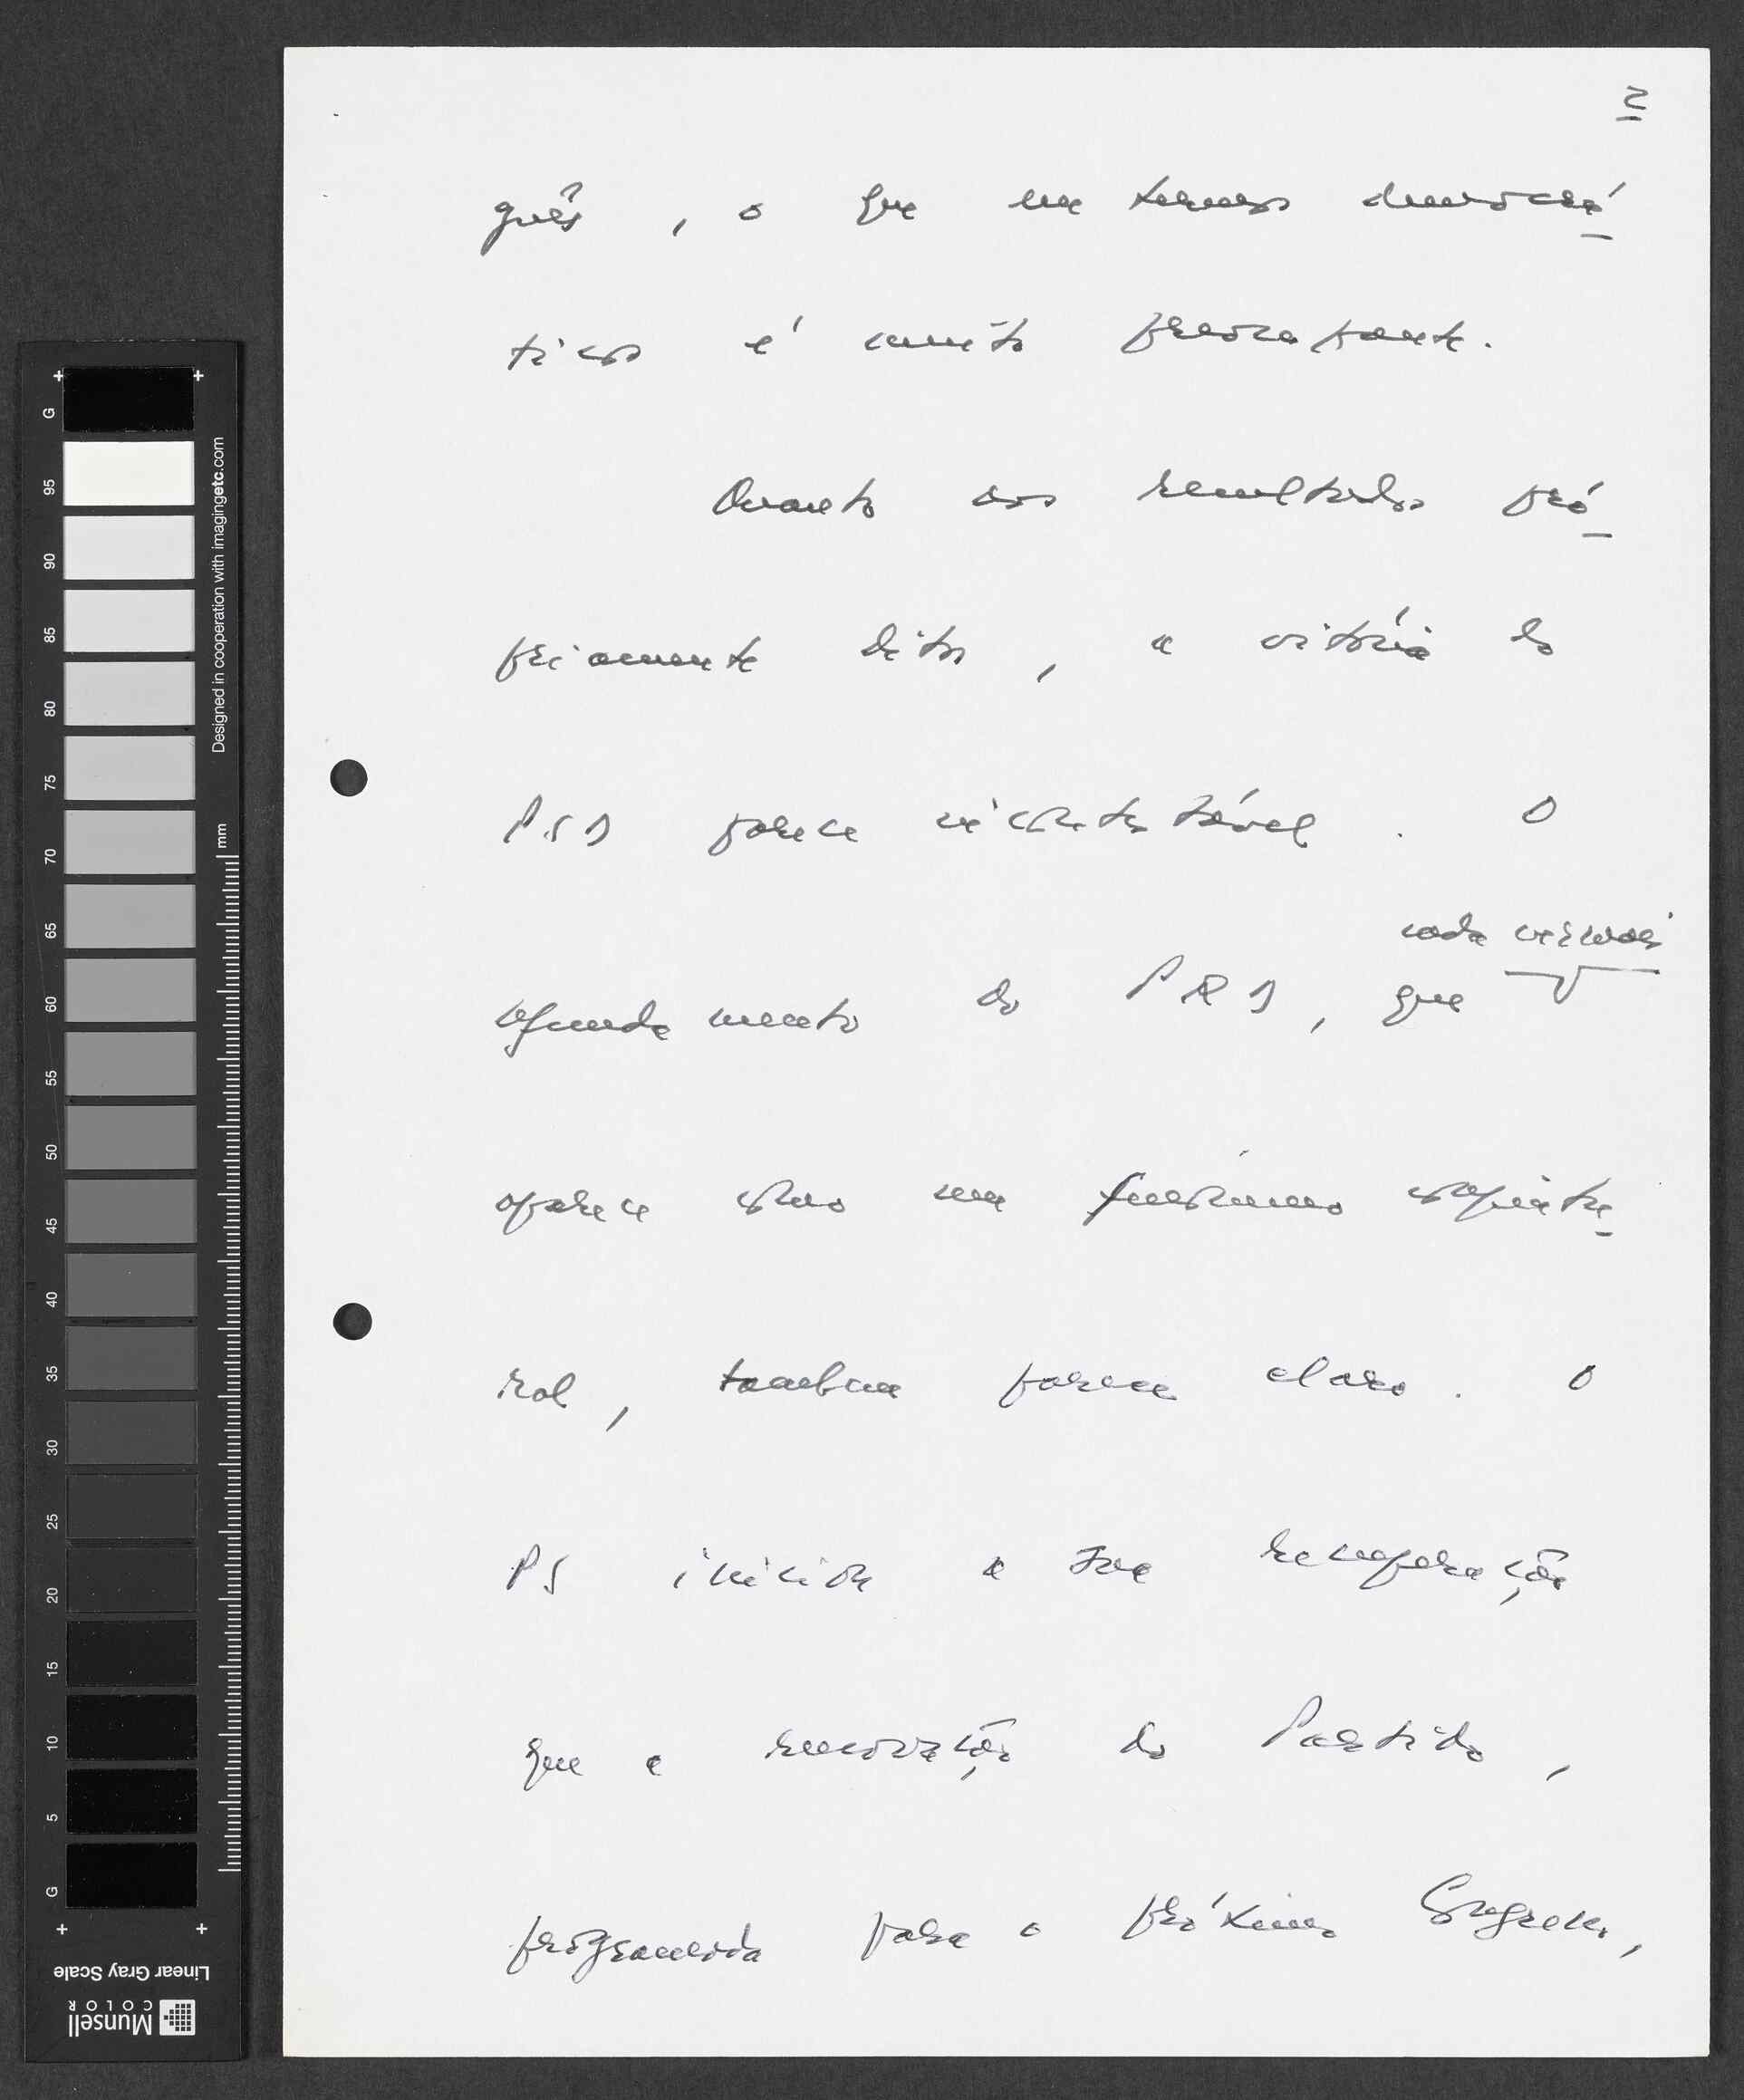 2
guês, o que em termos democrá
ticos é muito preocupante.
Quanto aos resultados pró
priamente ditos, a vitória do
PSD parece incontestável. O
cada vez mais
afundamento do PRD, que
aparece como um fenómeno conjuntu
ral, também parece claro. O
PS iniciou a sua recuperação
que a renovação do Partido,
programada para o próximo Congresso,
G 95 90 85 80 75 70 65 60 55 50 45 40 35 30 25 20 15 10 5 G
mm
Designed in cooperation with imagingetc.com
Linear Gray Scale
Munsell
COLOR